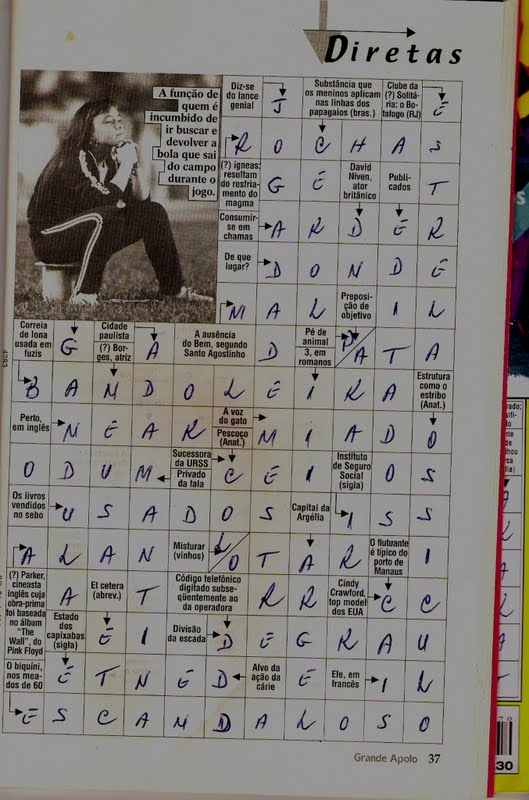 Diretas
A função de quem é incumbido de ir buscar e devolver a bola que sai do campo durante o jogo.
Diz-se do lance genial
J
Substância que os meninos aplicam nas linhas dos papagaios (bras.)
Clube da (?) Solitária: o Botafogo (RJ)
E
R O C H A S
(?) ígneas: resultam do resfriamento do magma
G E
David Niven, ator britânico
Publicados
T
Consumir-se em chamas
A R D E R
De que lugar?
D O N D E
M A L
Preposição de objetivo
I L
Correia de lona usada em fuzis
G
Cidade paulista
(?) Borges, atriz
A
A ausência do Bem, segundo Santo Agostinho
D
Pé de animal
3, em romanos
P A T A
B A N D O L E I R A
Estrutura como o estribo (Anat.)
Perto, em inglês
N E A R
A voz do gato
Pescoço (Anat.)
M I A D O
O D U M
Sucessora da URSS
Privado da fala
C E I
Instituto de Seguro Social (sigla)
O S
Os livros vendidos no sebo
U S A D O S
Capital da Argélia
I S S
A L A N
Misturar (vinhos)
L O T A R
O flutuante é típico do porto de Manaus
I
(?) Parker, cineasta inglês cuja obra-prima foi baseada no álbum "The Wall", do Pink Floyd
A
Et cetera (abrev.)
T
Código telefônico digitado subseqüentemente ao da operadora
R R
Cindy Crawford, top model dos EUA
C C
Estado dos capixabas (sigla)
E I
Divisão da escada
D E G R A U
O biquíni, nos meados de 60
E T N E D
Alvo da ação da cárie
E
Ele, em francês
I L
E S C A N D A L O S O
Grande Apolo 37
30